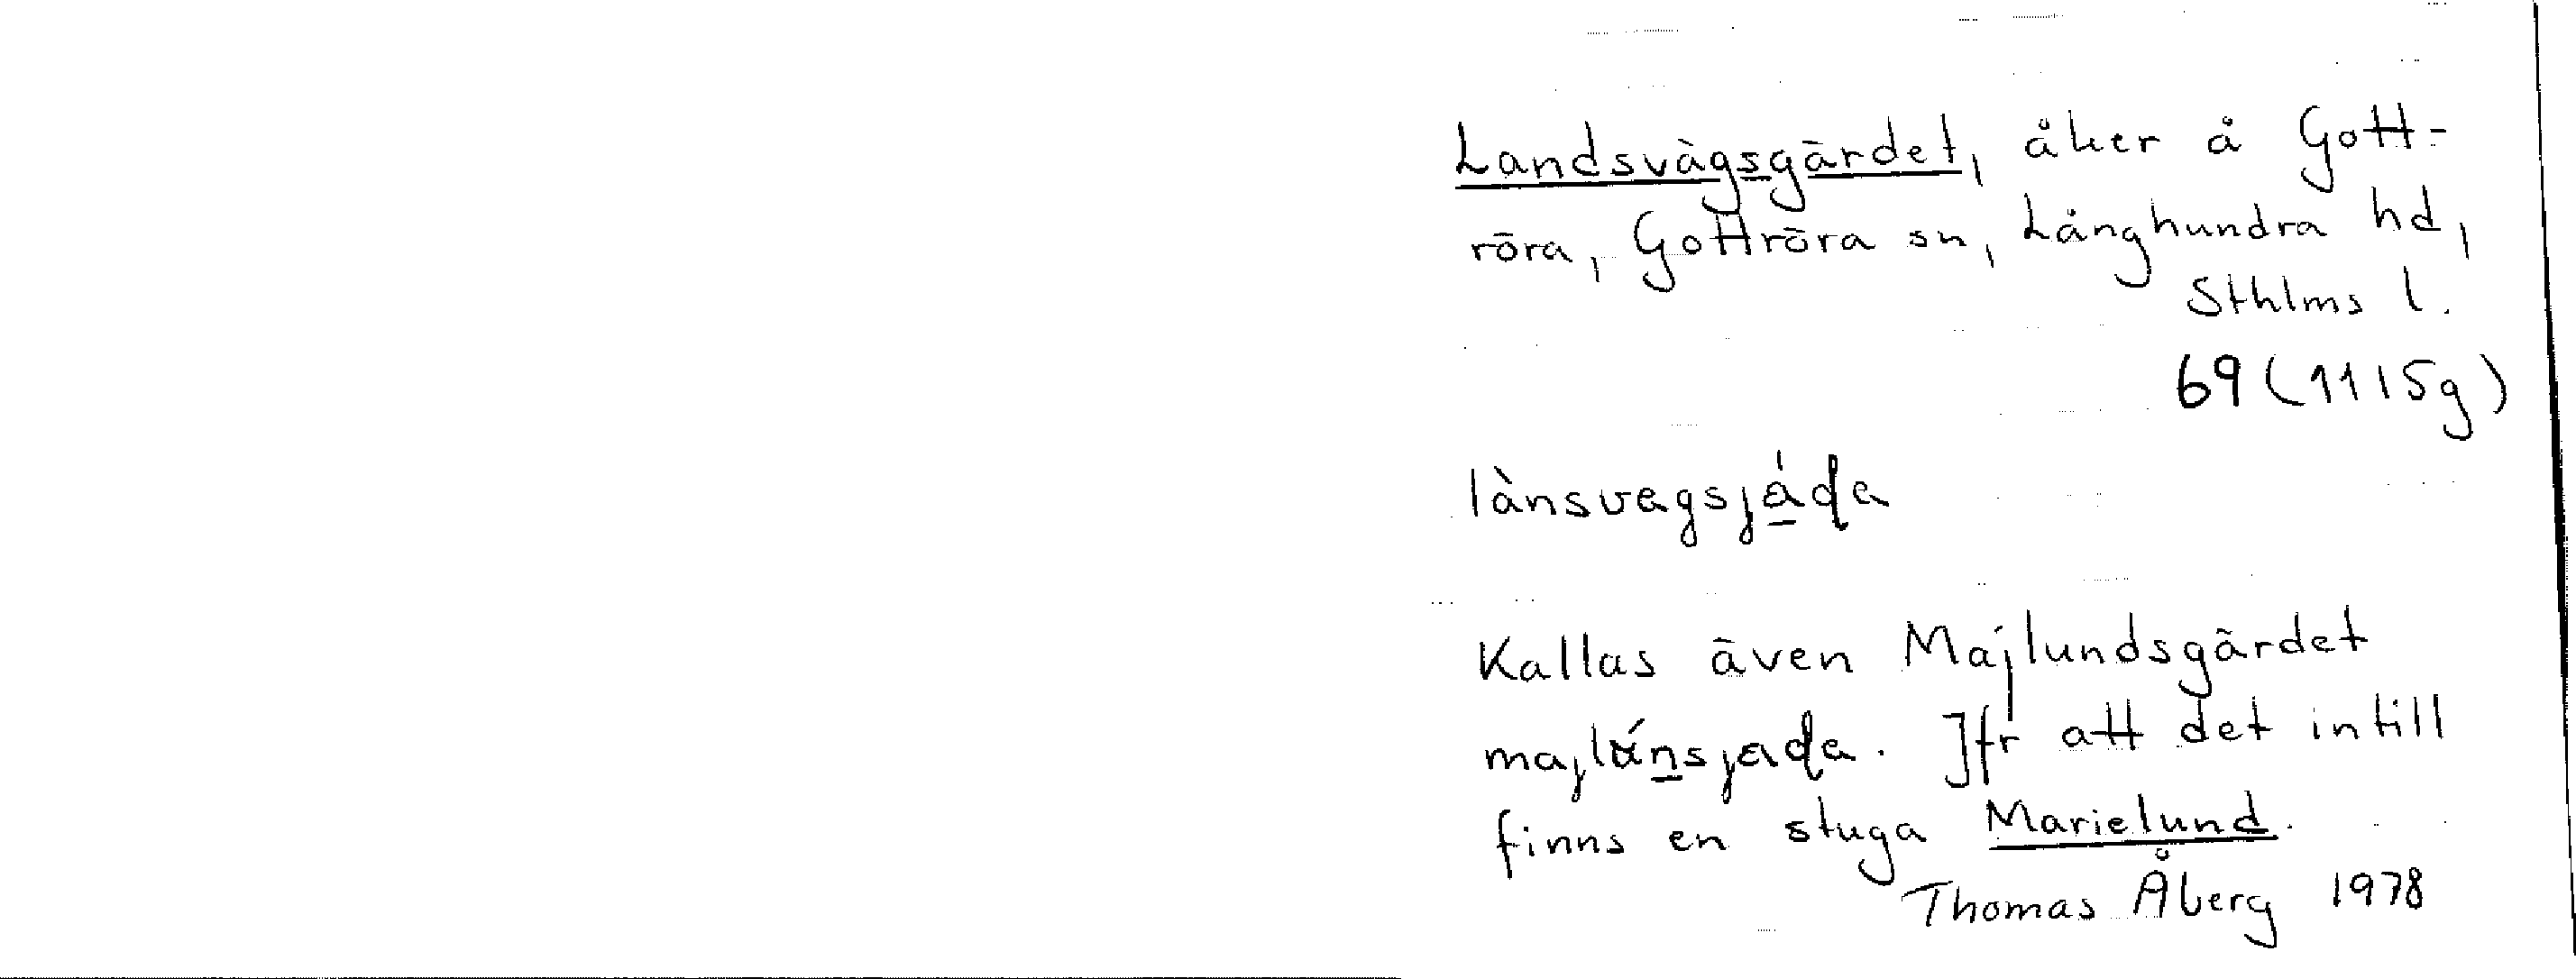 Landsvägsgärdet, åker å Gott-
röra, Gottröra sn, Långhundra hd,
Sthlms l.
69 (1115g)
lànsvagsjáḍa
Kallas även Majlundsgärdet
majlúnsjaḍa. Jfr att det intill
finns en stuga Marielund.
Thomas Åberg 1978